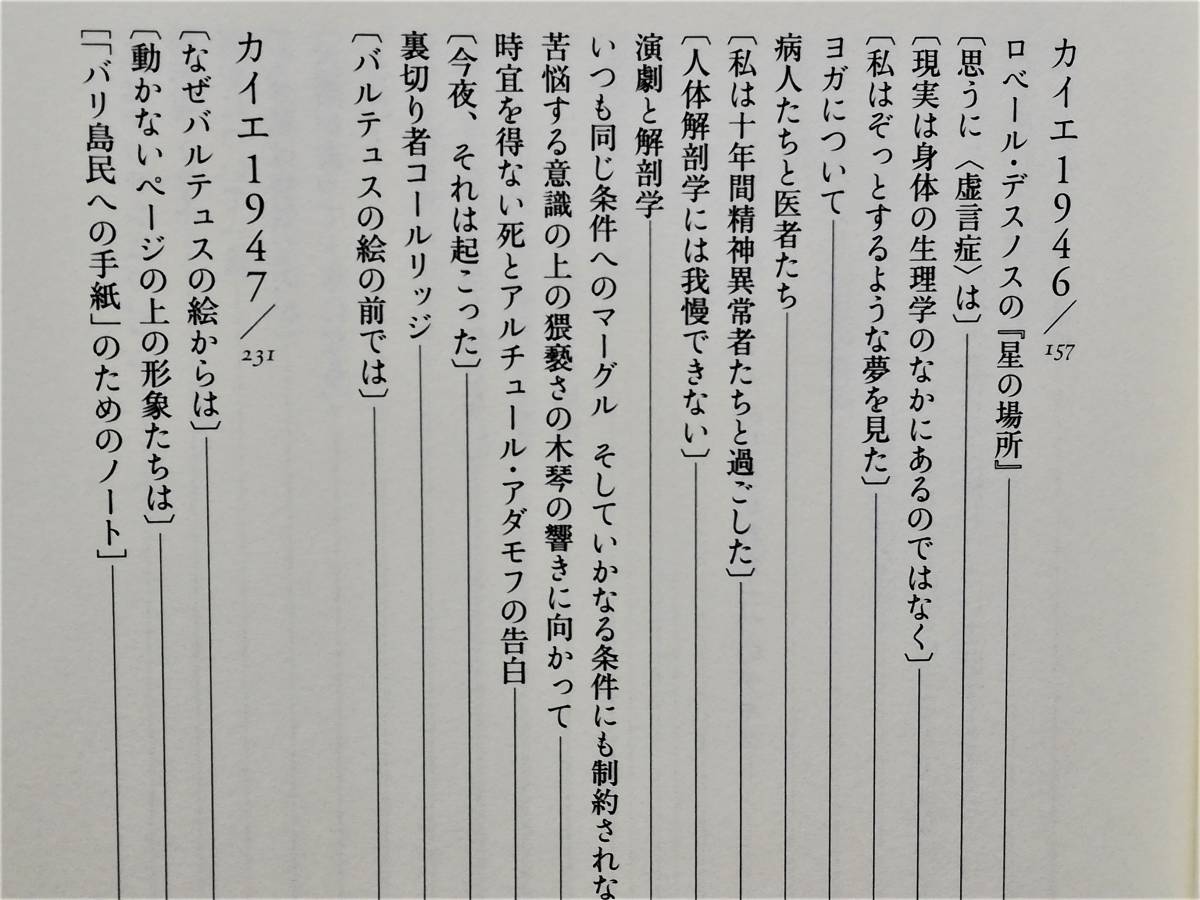 カイエ1946／157
ロベール・デスノスの『星の場所』
〔思うに〈虚言症〉は〕
〔現実は身体の生理学のなかにあるのではなく〕
〔私はぞっとするような夢を見た〕
ヨガについて
病人たちと医者たち
〔私は十年間精神異常者たちと過ごした〕
〔人体解剖学には我慢できない〕
演劇と解剖学
いつも同じ条件へのマーグル　そしていかなる条件にも制約されな
苦悩する意識の上の猥褻さの木琴の響きに向かって
時宜を得ない死とアルチュール・アダモフの告白
〔今夜、それは起こった〕
裏切り者コールリッジ
〔バルテュスの絵の前では〕
カイエ1947／231
〔なぜバルテュスの絵からは〕
〔動かないページの上の形象たちは〕
〔「バリ島民への手紙」のためのノート〕